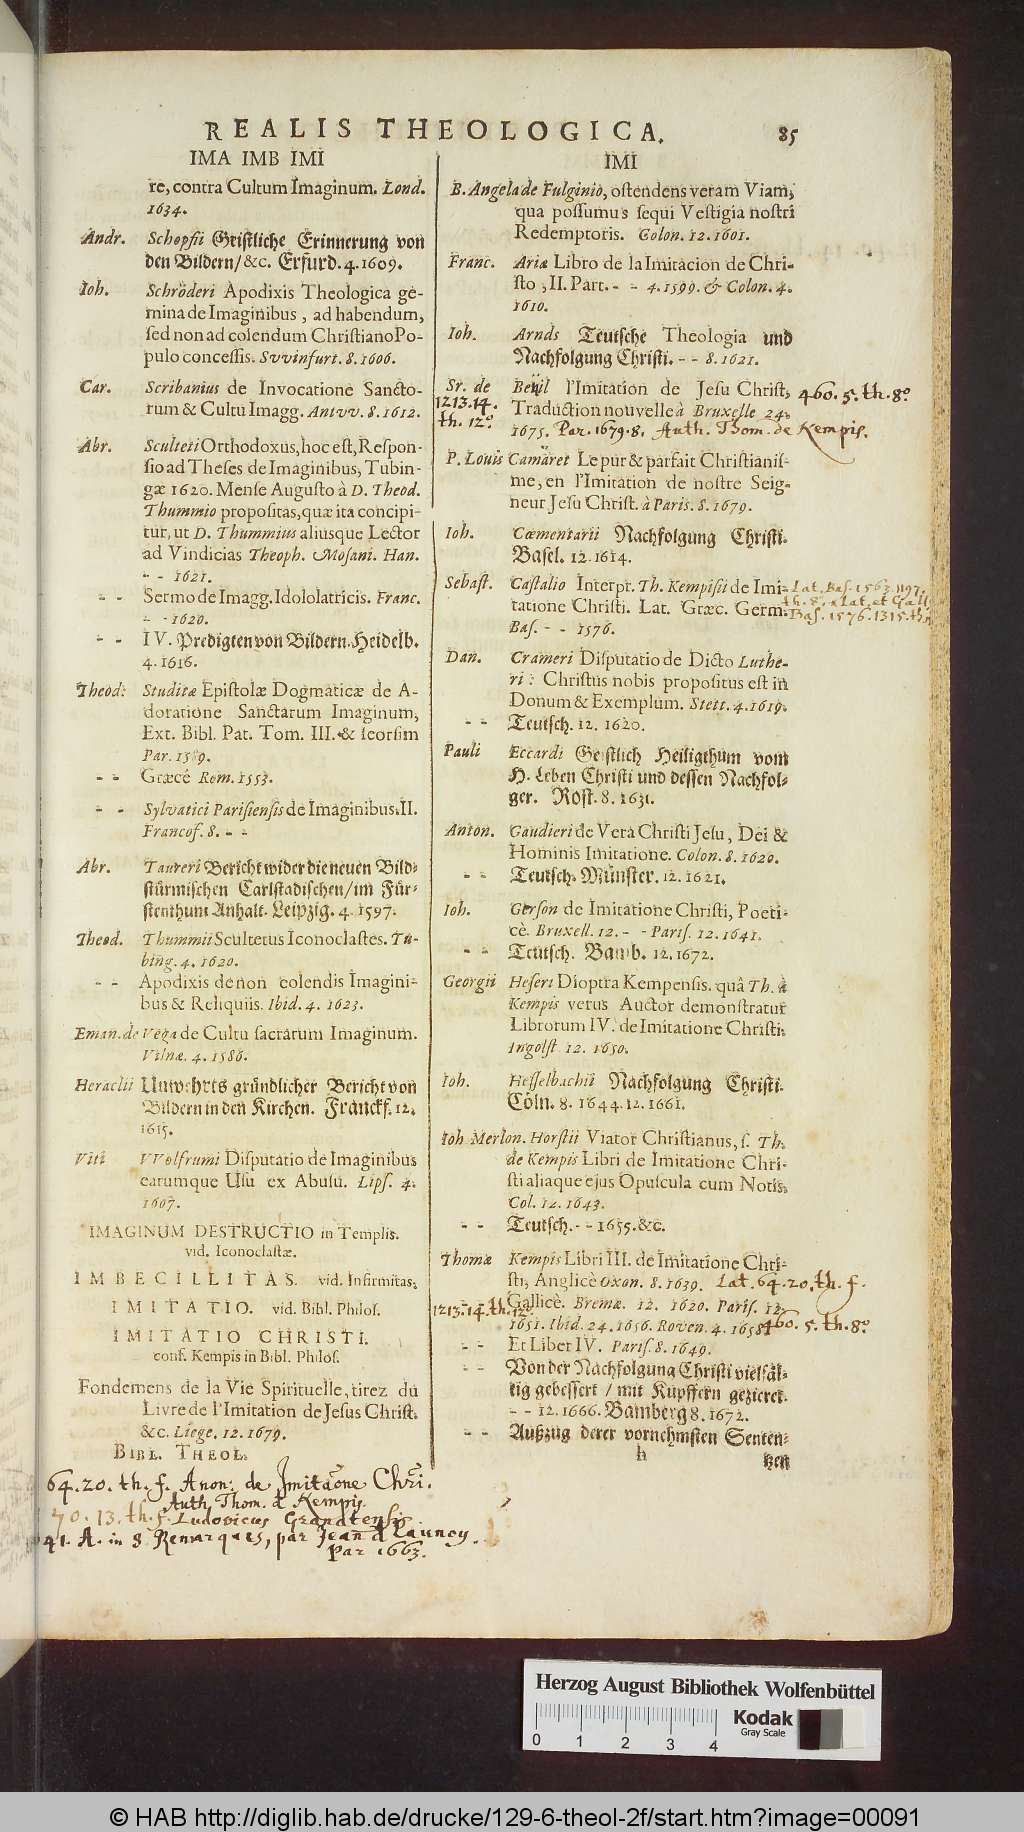 REALIS THEOLOGICA. 85
IMA IMB IMI
re, contra Cultum Imaginum. Lond.
1634.
Andr. Schopfii Geistliche Erinnerung von
den Bildern/ &c. Erfurd. 4. 1609.
Ioh. Schröderi Apodixis Theologica ge-
mina de Imaginibus, ad habendum,
sed non ad colendum Christiano Po-
pulo concessis. Svvinfurt. 8. 1606.
Car. Scribanius de Invocatione Sancto-
rum & Cultu Imagg. Antvv. 8. 1612.
Abr. Sculteti Orthodoxus, hoc est, Respon-
sio ad Theses de Imaginibus, Tubin-
gæ 1620. Mense Augusto à D. Theod.
Thummio propositas, quæ ita concipi-
tur, ut D. Thummius aliusque Lector
ad Vindicias Theoph. Mosani. Han.
- - 1621.
- - Sermo de Imagg. Idololatricis. Franc.
- - 1620.
- - IV. Predigten von Bildern. Heidelb.
4. 1616.
Theod. Studitæ Epistolæ Dogmaticæ de A-
doratione Sanctarum Imaginum,
Ext. Bibl. Pat. Tom. III. & seorsim
Par. 1589.
- - Græcè Rom. 1553.
- - Sylvatici Parisiensis de Imaginibus II.
Francof. 8. - -
Abr. Taureri Bericht wider die neuen Bild-
stürmischen Carlstadischen/ im Für-
stenthum Anhalt. Leipzig. 4. 1597.
Theod. Thummii Scultetus Iconoclastes. Tu-
bing. 4. 1620.
- - Apodixis de non colendis Imagini-
bus & Reliquiis. Ibid. 4. 1623.
Eman. de Vega de Cultu sacrarum Imaginum.
Vilnæ. 4. 1586.
Heraclii Unwehrts gründlicher Bericht von
Bildern in den Kirchen. Franckf. 12.
1615.
Viti VVolfrumi Disputatio de Imaginibus
earumque Usu ex Abusu. Lips. 4.
1607.
IMAGINUM DESTRUCTIO in Templis.
vid. Iconoclastæ.
IMBECILLITAS. vid. Infirmitas.
IMITATIO. vid. Bibl. Philos.
IMITATIO CHRISTI.
conf. Kempis in Bibl. Philos.
Fondemens de la Vie Spirituelle, tirez du
Livre de l'Imitation de Jesus Christ.
&c. Liege. 12. 1679.
BIBL. THEOL.
64. 20. th. f. Anon: de Imitaone Chri.
Auth. Thom. à Kempis.
70. 13. th. f. Ludovicus Granatensis
41. A. in 8 Remarques, par Jean d Launoy.
Par 1663.
IMI
B. Angela de Fulginio, ostendens veram Viam,
qua possumus sequi Vestigia nostri
Redemptoris. Colon. 12. 1601.
Franc. Ariæ Libro de la Imitacion de Chri-
sto, II. Part. - - 4. 1599. & Colon. 4.
1610.
Ioh. Arnds Teutsche Theologia und
Nachfolgung Christi. - - 8. 1621.
Sr. de Beüil l'Imitation de Jesu Christ, 460. 5. th. 8°
1213. 14. Traduction nouvelle à Bruxelle 24.
th. 12° 1675. Par. 1679. 8. Auth. Thom. de Kempis.
P. Louis Camaret Le pur & parfait Christianis-
me, en l'Imitation de nostre Seig-
neur Jesu Christ. à Paris. 8. 1679.
Ioh. Cæmentarii Nachfolgung Christi.
Basel. 12. 1614.
Sebast. Castalio Interpr. Th. Kempisii de Imi- Lat. Bas. 1563. 1197.
tatione Christi. Lat. Græc. Germ. th. 8. Lat. et Gall.
Bas. - - 1576. Bas. 1576. 1315. th
Dan. Crameri Disputatio de Dicto Luthe-
ri: Christus nobis propositus est in
Donum & Exemplum. Stett. 4. 1619.
- - Teutsch. 12. 1620.
Pauli Eccardi Geistlich Heiligthum vom
H. Leben Christi und dessen Nachfol-
ger. Rost. 8. 1631.
Anton. Gaudieri de Verâ Christi Jesu, Dei &
Hominis Imitatione. Colon. 8. 1620.
- - Teutsch. Münster. 12. 1621.
Ioh. Gerson de Imitatione Christi, Poeti-
cè. Bruxell. 12. - - Paris. 12. 1641.
- - Teutsch. Bamb. 12. 1672.
Georgii Heseri Dioptra Kempensis. quâ Th. à
Kempis verus Auctor demonstratur
Librorum IV. de Imitatione Christi.
Ingolst. 12. 1650.
Ioh. Hesselbachii Nachfolgung Christi.
Cöln. 8. 1644. 12. 1661.
Ioh Merlon. Horstii Viator Christianus, s. Th.
de Kempis Libri de Imitatione Chri-
sti aliaque ejus Opuscula cum Notis.
Col. 12. 1643.
- - Teutsch. - - 1655. &c.
Thomæ Kempis Libri III. de Imitatione Chri-
sti, Anglicè Oxon. 8. 1639. Lat. 64. 20. th. f.
1213. 14. th. 12° Gallicè. Bremæ. 12. 1620. Paris. 12.
1651. Ibid. 24. 1656. Roven. 4. 1658. 460. 5. th. 8°
- - Et Liber IV. Paris. 8. 1649.
- - Von der Nachfolgung Christi vielfäl-
tig gebessert / mit Kupffern gezieret.
- - 12. 1666. Bamberg 8. 1672.
- - Außzug derer vornehmsten Senten-
h tzen
Herzog August Bibliothek Wolfenbüttel
Kodak
Gray Scale
0 1 2 3 4
© HAB http://diglib.hab.de/drucke/129-6-theol-2f/start.htm?image=00091